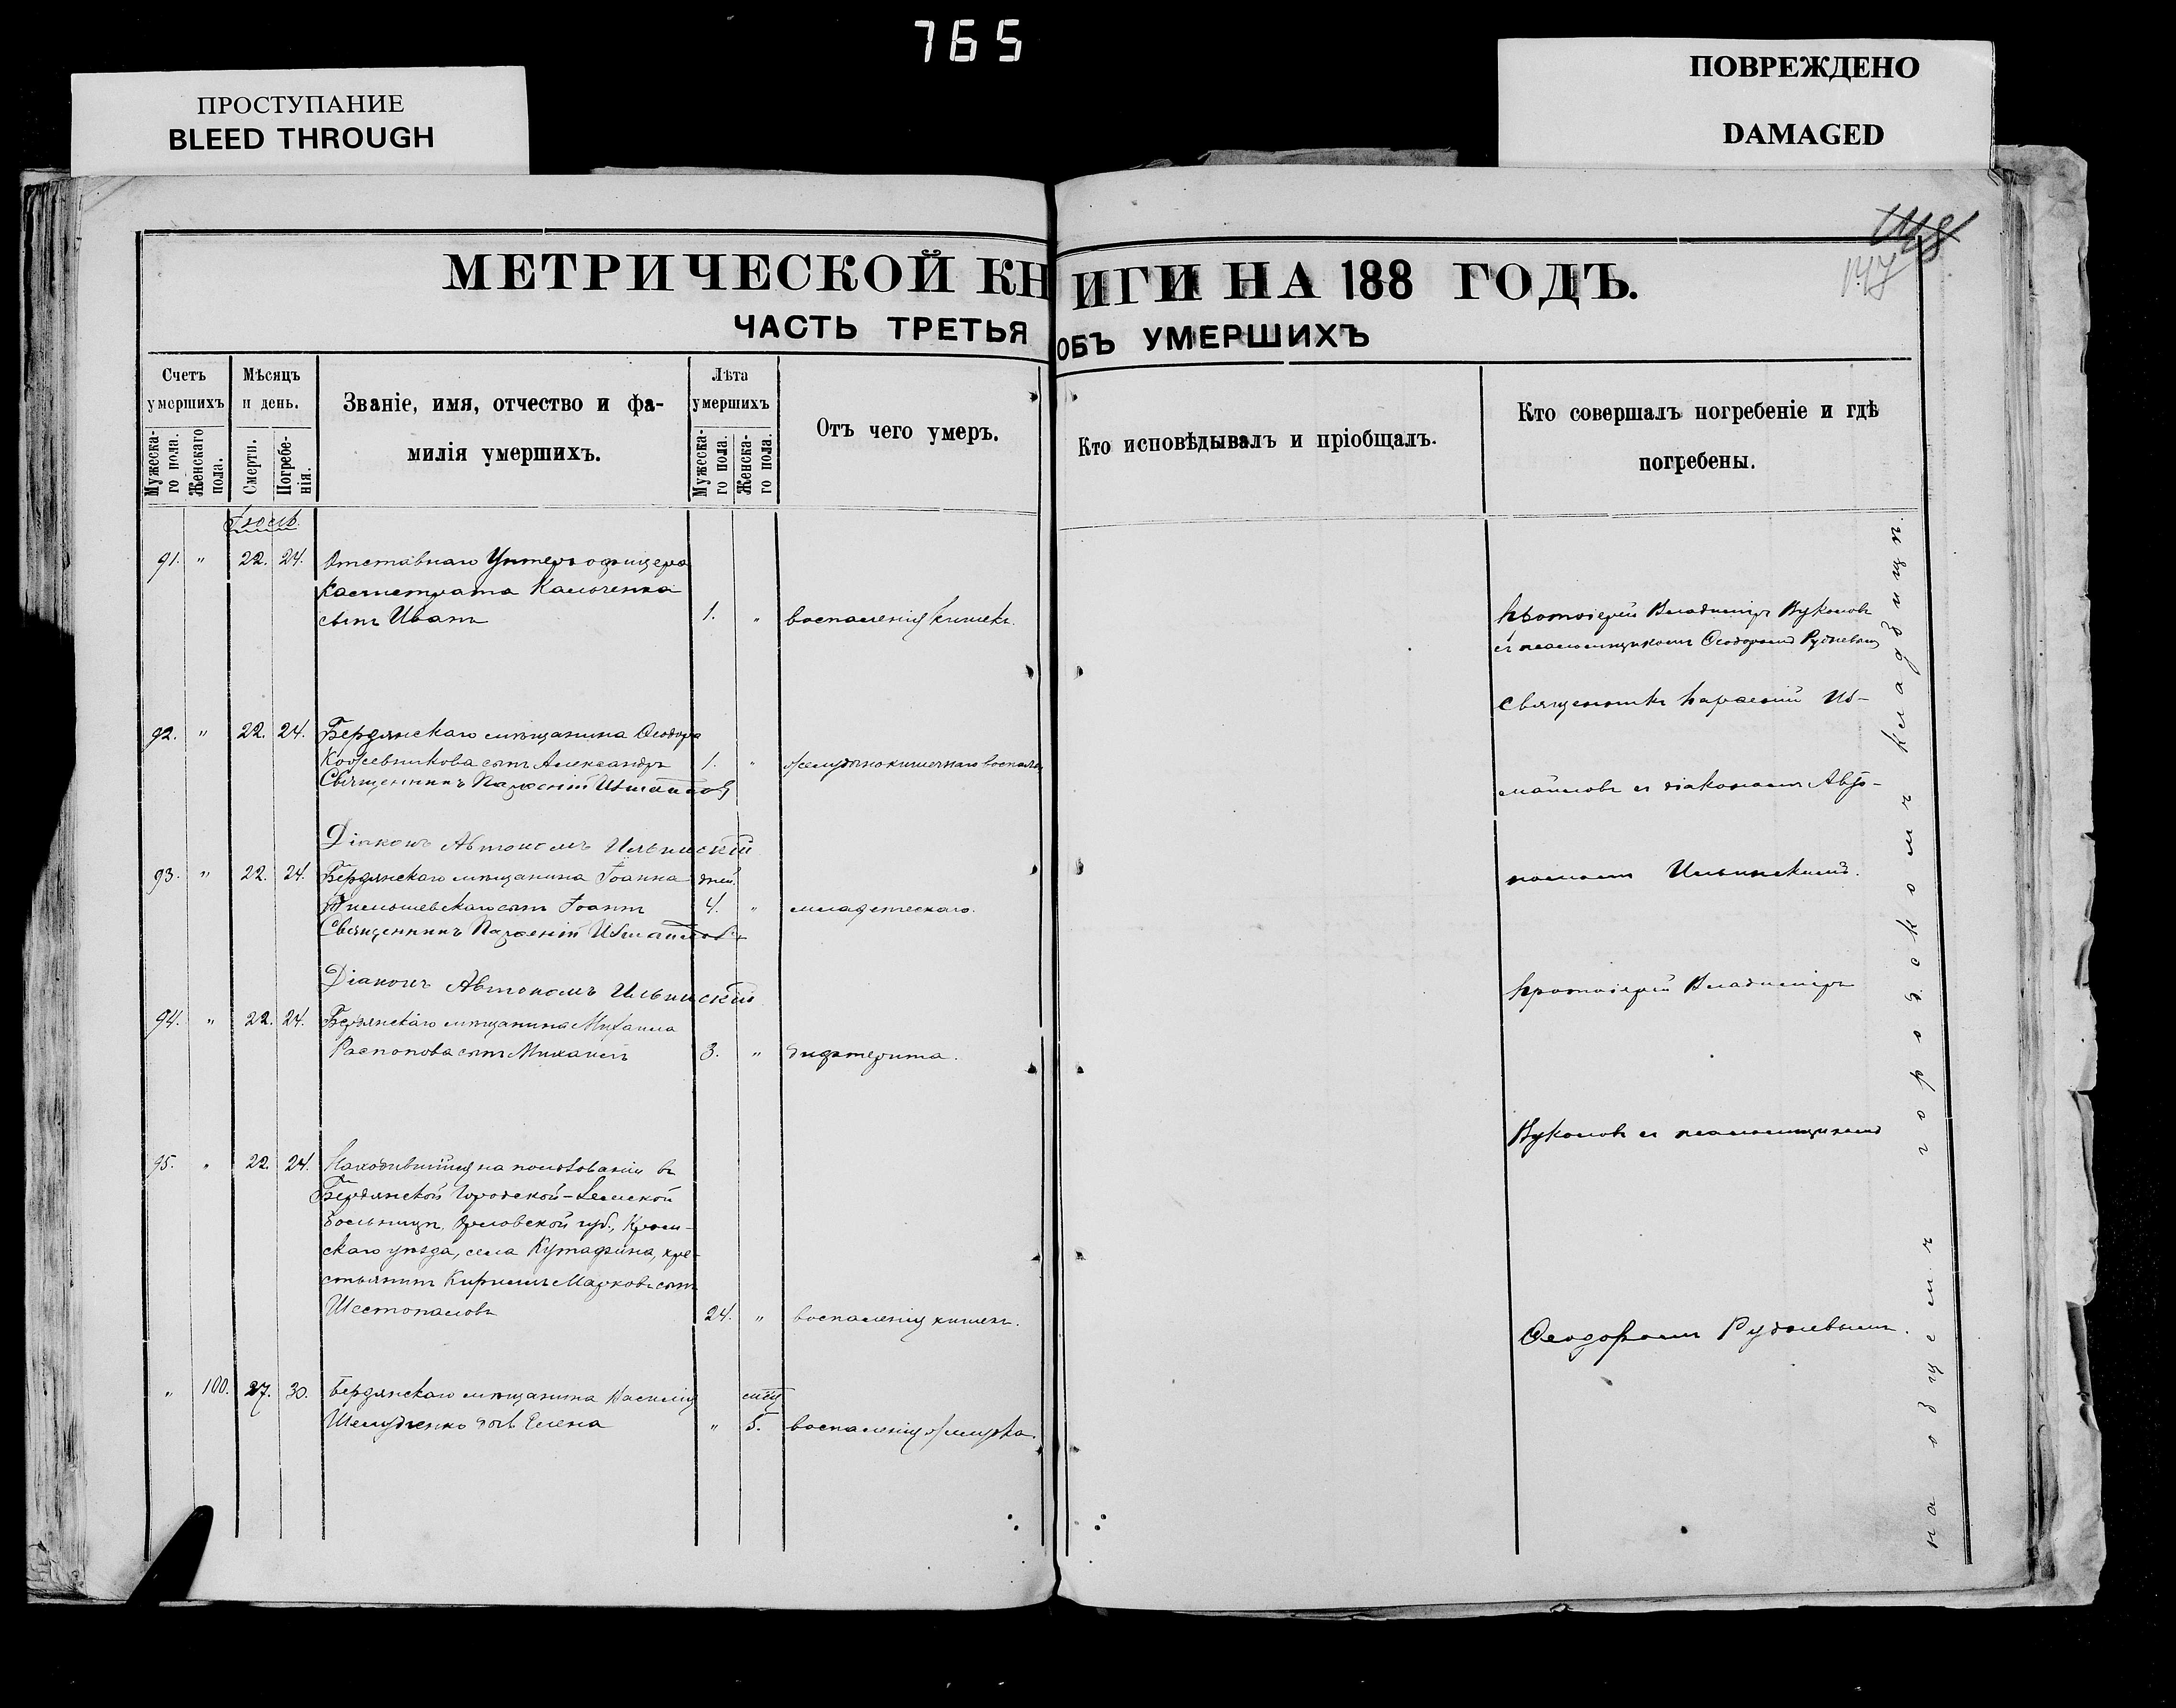 765
ПРОСТУПАНИЕ
BLEED THROUGH
ПОВРЕЖДЕНО
DAMAGED
147
МЕТРИЧЕСКОЙ КНИГИ НА 188 ГОДЪ.
ЧАСТЬ ТРЕТЬЯ ОБЪ УМЕРШИХЪ
Счетъ умершихъ
Мужеска-го пола.
Женскаго пола.
Мѣсяцъ и день.
Смерти.
Погребе-нія.
Званіе, имя, отчество и фа-
милія умершихъ.
Лѣта умершихъ
Мужеска-го пола.
Женска-го пола.
Отъ чего умеръ.
Кто исповѣдывалъ и пріобщалъ.
Кто совершалъ погребеніе и гдѣ
погребены.
91. " 22. 24. Отставнаго Унтеръ офицера
сынъ Иванъ 1. " воспаленія кишекъ.
Протоіерей Владиміръ Вуколовъ
съ псаломщикомъ Ѳеодоромъ Рудневымъ
Священникъ Парѳеній Из-
92. " 22. 24. Бердянскаго мѣщанина Ѳеодора
Кожевникова сынъ Александръ 1. "
Священникъ Парѳеній Измаиловъ
маиловъ съ діакономъ Авто-
Діаконъ Автономъ Ильинскій
93. " 22. 24. Бердянскаго мѣщанина Іоанна дней
сынъ Іоаннъ 4. " младенческаго.
Священникъ Парѳеній Измаиловъ
номомъ Ильинскимъ.
Діаконъ Автономъ Ильинскій
Протоіерей Владиміръ
94. " 22. 24. Бердянскаго мѣщанина Михаила
Распопова сынъ Михаилъ 3. " дифтерита.
Вуколовъ съ псаломщикомъ
95. " 22. 24. Находившійся на пользованіи въ
Бердянской Городской-Земской
больницѣ, Орловской губ., Кром-
скаго уѣзда, села Кутафина, кре-
стьянинъ Кириллъ Марковъ сынъ
Шестопаловъ 24. " воспаленія кишекъ.
Ѳеодоромъ Рудневымъ.
" 100. 27. 30. Бердянскаго мѣщанина Василія мѣс.
дочь Елена " 5. воспаленія желудка.
на общемъ городскомъ кладбищѣ.